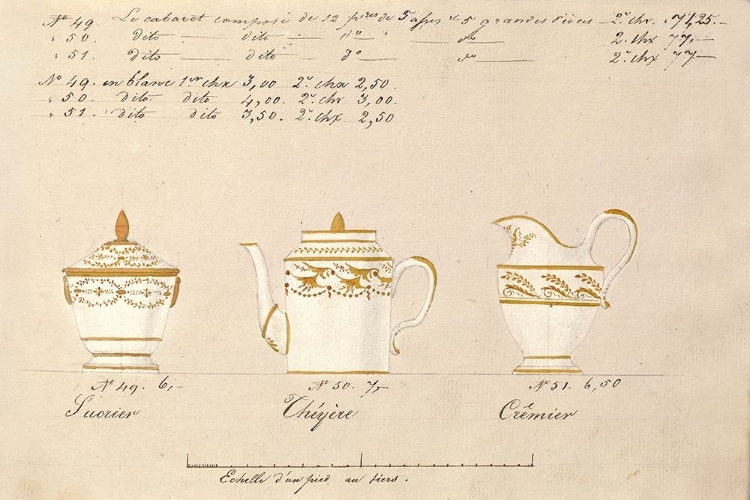 No 49. Le cabaret composé de 12 pres de Tasses & 5 grandes Pièces — 2e chx.
" 50. dito — dito — do — do — 2. chx 77,—
" 51. dito — dito — do — do — 2e chx 77,—
No 49. en blanc 1er chx 3,00 2e chx 2,50.
" 50. dito dito 4,00. 2e chx 3,00.
" 51. dito dito 3,50. 2e chx 2,50
No 49. 6,—
No 50. 7,—
No 51. 6,50
Sucrier
Théyère
Crêmier
Echelle d'un pied au tiers.